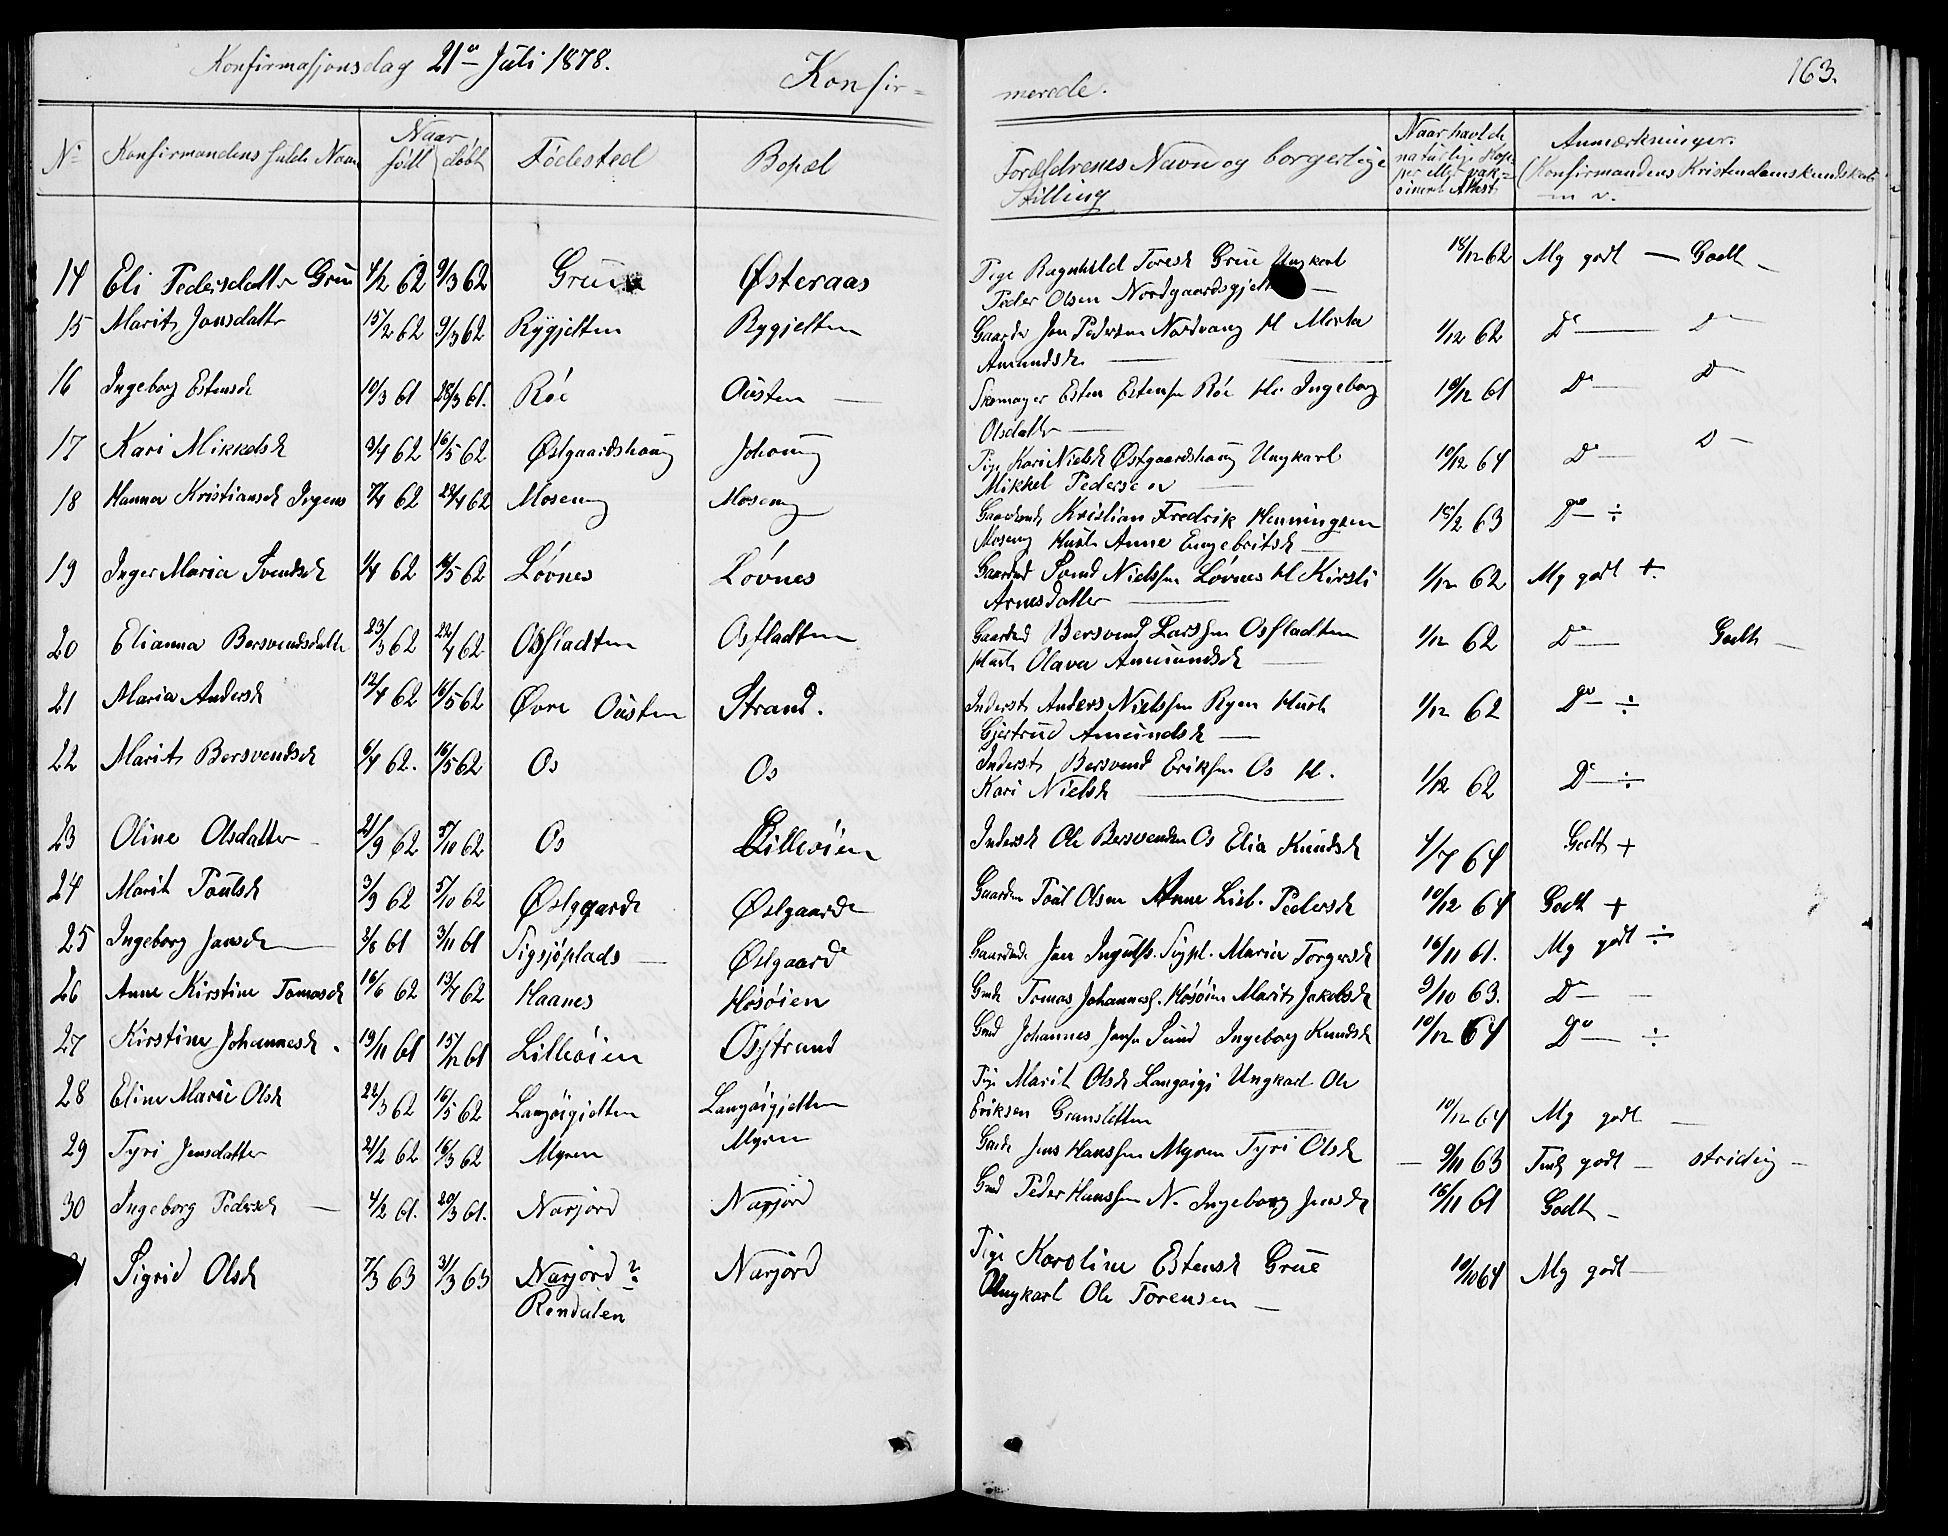 Konfirmasjonsdag 21de Juli 1878.
Konfir-
merede.
163.
No Konfirmandens fulde Navn Naar født døbt Fødested Bopæl Forældrenes Navn og borgerlige Stilling Naar havt de naturlige Kopper eller vaksineret Attest Anmærkninger. (Konfirmandens Kristendomskundskab m. v.
14 Eli Pedersdatter Grue 4/2 62 9/3 62 Grue Østeraas Pige Ragnhild Toresd Grue Ungkarl 18/12 62 Mg godt — Godt —
Peder Olsen Nordgaardsgjelt
15 Marit Jonsdatter 15/2 62 9/3 62 Rygjelten Rygjelten Gaardbr Jon Pedersen Nordvang H Marta 1/12 62 Do — Do
Amundsd.
16 Ingeborg Estensd 10/3 61 28/3 61. Røe Øusten — Skomager Esten Estensen Røe Hu. Ingeborg 10/12 61 Do — Do
Olsdatter —
17 Kari Mikkelsd 3/4 62 16/5 62 Østgaardshaug Johaug Pige Kari Nielsd Østgaardshaug Ungkarl 10/12 64 Do — Do —
Mikkel Pedersen
18 Hanna Kristiansd Irgens 7/4 62 29/4 62 Moseng Moseng Gaardmd Kristian Fredrik Henningsen 18/2 63 Do — ÷
Moseng Hust Anne Engebritsd
19 Inger Maria Svendsd 1/4 62 16/5 62 Løvnes Løvnes Gaardmd Svend Nielssen Løvnes H Kirsti 1/12 62 Mg godt +.
Arnesdatter —
20 Elianna Bersvendsdatte 23/3 62 22/4 62. Osfladten Osfladten Gaardmd Bersvend Larssen Osfladten 1/12 62 Do — Godt —
Hust Olava Amundsd
21 Maria Andersd 12/4 62 16/5 62 Øvre Øusten Strand. Inderst Anders Nielssen Ryen Hust 1/12 62 Do — ÷
Gjertrud Amundsd —
22 Marit Bersvendsd 6/4 62. 16/5 62 Os Os Inderst Bersvend Eriksen Os H. 1/12 62 Do — ÷
Kari Nielsd
23 Oline Olsdatter 21/9 62 5/10 62 Os Lilleøien Inderst Ole Bersvendsen Os Elia Knudsd 4/7 64 Godt +
24 Marit Poulsd 3/9 62 5/10 62 Østgaarde Østgaarde Gaardm Poul Olsen Anne Lisb. Pedersd 10/12 64 Godt +
25 Ingeborg Jonsd — 3/8 61 3/11 61 Sigsjøplads — Østgaard Gaardmd Jon Ingulfs. Sigpl. Maria Torgersd 16/11 61. Mg godt ÷
26 Anne Kirstine Tomasd 16/6 62 13/7 62 Haanes Hosøien Gmd Tomas Johanness. Hosøien Marit Jakobsd 9/10 63. Do —
27 Kirstine Johannesd. 19/11 61 15/12 61 Lilleøien Osstrand Gmd Johannes Jonsen Sund Ingeborg Knudsd 10/12 64 Do — ÷
28 Eline Marie Olsd 22/3 62 16/5 62 Langøigjelten Langøigjelten Pige Marit Olsd Langøigj Ungkarl Ole
Eriksen Gransletten 10/12 64 Mg godt —
29 Tyri Jensdatter 21/2 62 16/3 62 Myren Myren Gmd Jens Hanssen Myren Tyri Olsd — 9/11 63 Tmlg godt — stridig —
30 Ingeborg Pedersd — 4/2 61. 20/3 61. Narjord Narjord Gmd Peder Hanssen N. Ingeborg Jensd 16/11 61 Godt —
Sigrid Olsd 7/3 63 31/3 63 Narjord ? Narjord Pige Karoline Estensd Grue 10/10 64 Mg godt —
Rendalen Ungkarl Ole Torensen —